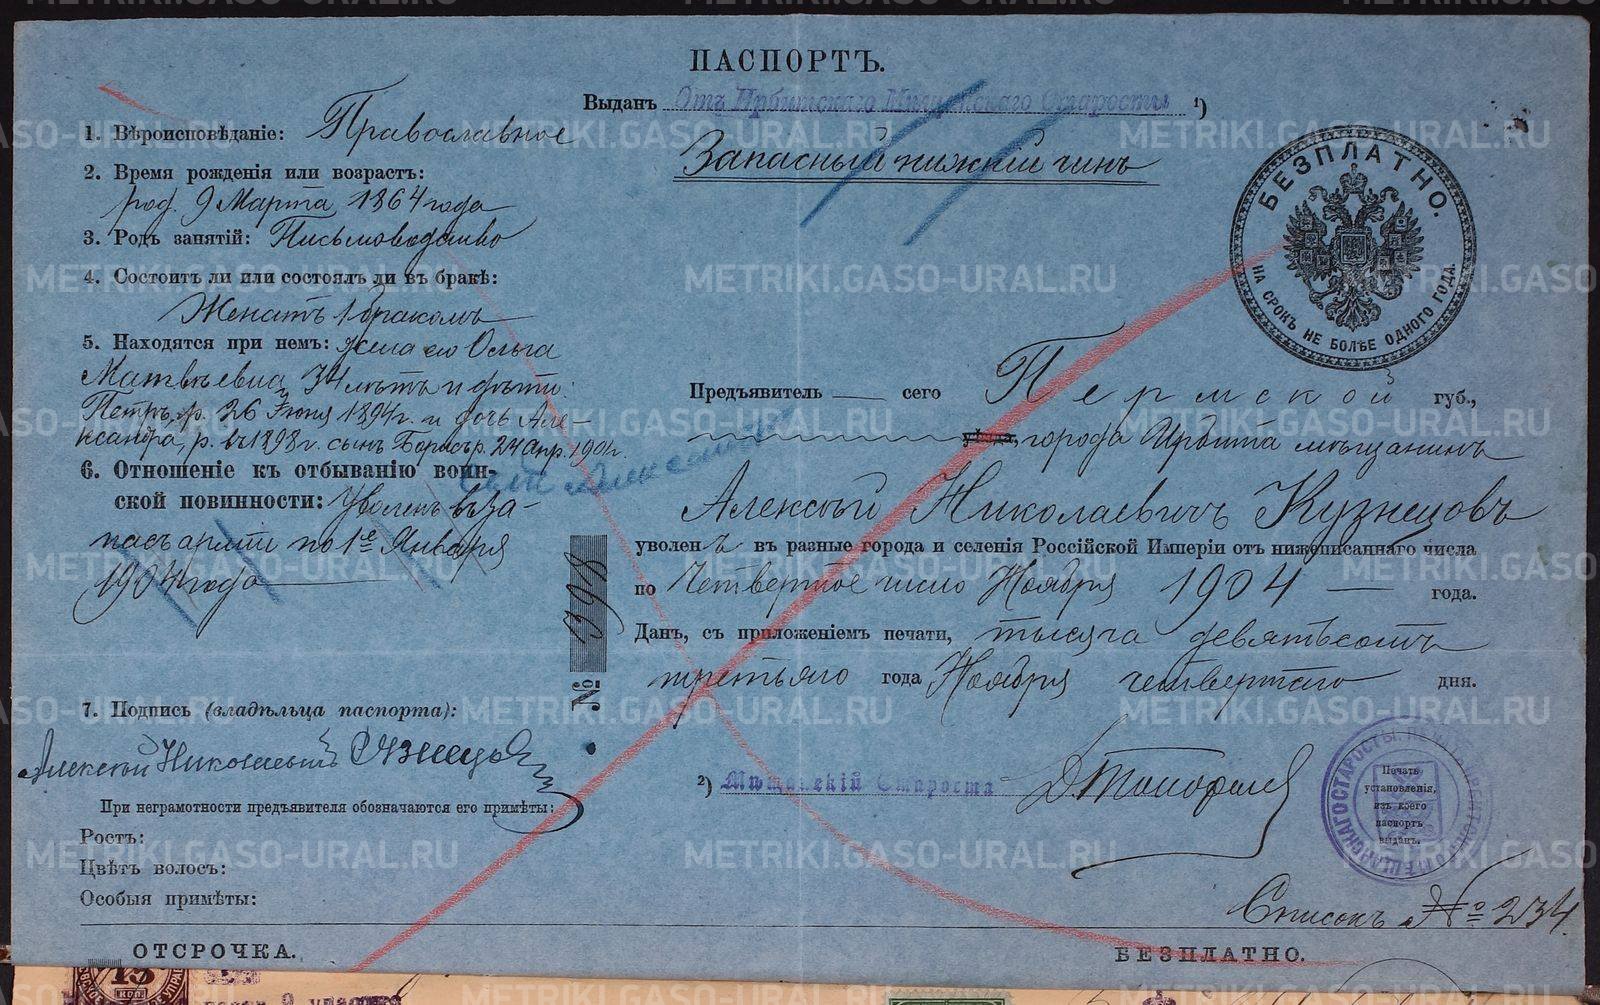 ПАСПОРТЪ.
Выданъ Отъ Ирбитскаго Мѣщанскаго Старосты ¹)
Запасный нижній чинъ
1. Вѣроисповѣданіе: Православное
2. Время рожденія или возрастъ:
род. 9 Марта 1864 года
3. Родъ занятій: Письмоводство
4. Состоитъ ли или состоялъ ли въ бракѣ:
Женатъ 1 бракомъ
5. Находятся при немъ: жена его Ольга
Матвѣевна 34 лѣтъ и дѣти:
Петръ, р. 26 Іюня 1894 г. и дочь Але-
ксандра, р. въ 1898 г. сынъ Борисъ р. 24 апр. 1901 г.
сынъ Алексѣй
6. Отношеніе къ отбыванію воин-
ской повинности: Уволенъ въ за-
пасъ арміи по 1е Января
1904 года
7. Подпись (владѣльца паспорта):
Алексѣй Николаевичъ Кузнецовъ
При неграмотности предъявителя обозначаются его примѣты:
Ростъ:
Цвѣтъ волосъ:
Особыя примѣты:
ОТСРОЧКА.
№ 398
БЕЗПЛАТНО.
НА СРОКЪ НЕ БОЛѢЕ ОДНОГО ГОДА.
Предъявитель сего Пермской губ.,
города Ирбита мѣщанинъ
Алексѣй Николаевичъ Кузнецовъ
уволенъ въ разные города и селенія Россійской Имперіи отъ нижеписаннаго числа
по Четвертое число Ноября 1904 года.
Данъ, съ приложеніемъ печати, тысяча девятьсотъ
третьяго года Ноября четвертаго дня.
²) Мѣщанскій Староста
Печать
установленія,
изъ коего
паспортъ
выданъ.
Списокъ № 234.
БЕЗПЛАТНО.
15
КОП.
METRIKI.GASO-URAL.RU